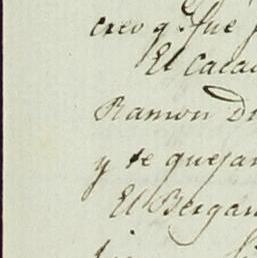 creo q. fué
El Cata
Ramon D
y se quejan
El Bergan